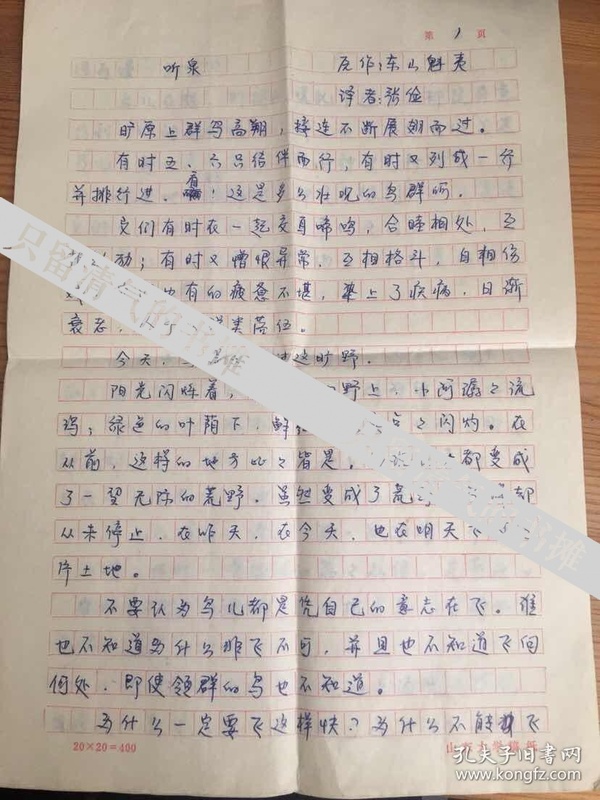 第 1 页
听泉 原作:东山魁夷
译者:张俭
旷原上群鸟高翔,接连不断展翅而过。
有时五、六只结伴而行,有时又列成一行
并排行进。看!这是多么壮观的鸟群啊。
它们有时在一起交耳啼鸣,合睦相处,互
励;有时又憎恨异常,互相格斗,自相伤
也有的疲惫不堪,染上了疾病,日渐
衰老, 落伍。
今天, 这旷野。
阳光闪烁着, 野上,小河潺々流
淌;绿色的叶荫下, 々闪灼。在
从前,这样的地方比々皆是, 都变成
了一望无际的荒野。虽然变成了荒 却
从未停止,在昨天,在今天,也在明天飞
净土地。
不要认为鸟儿都是凭自己的意志在飞。谁
也不知道为什么非飞不可,并且也不知道飞向
何处,即使领群的鸟也不知道。
为什么一定要飞这样快?为什么不能 飞
20×20=400
只留清气的书摊
书摊
孔夫子旧书网
www.kongfz.com